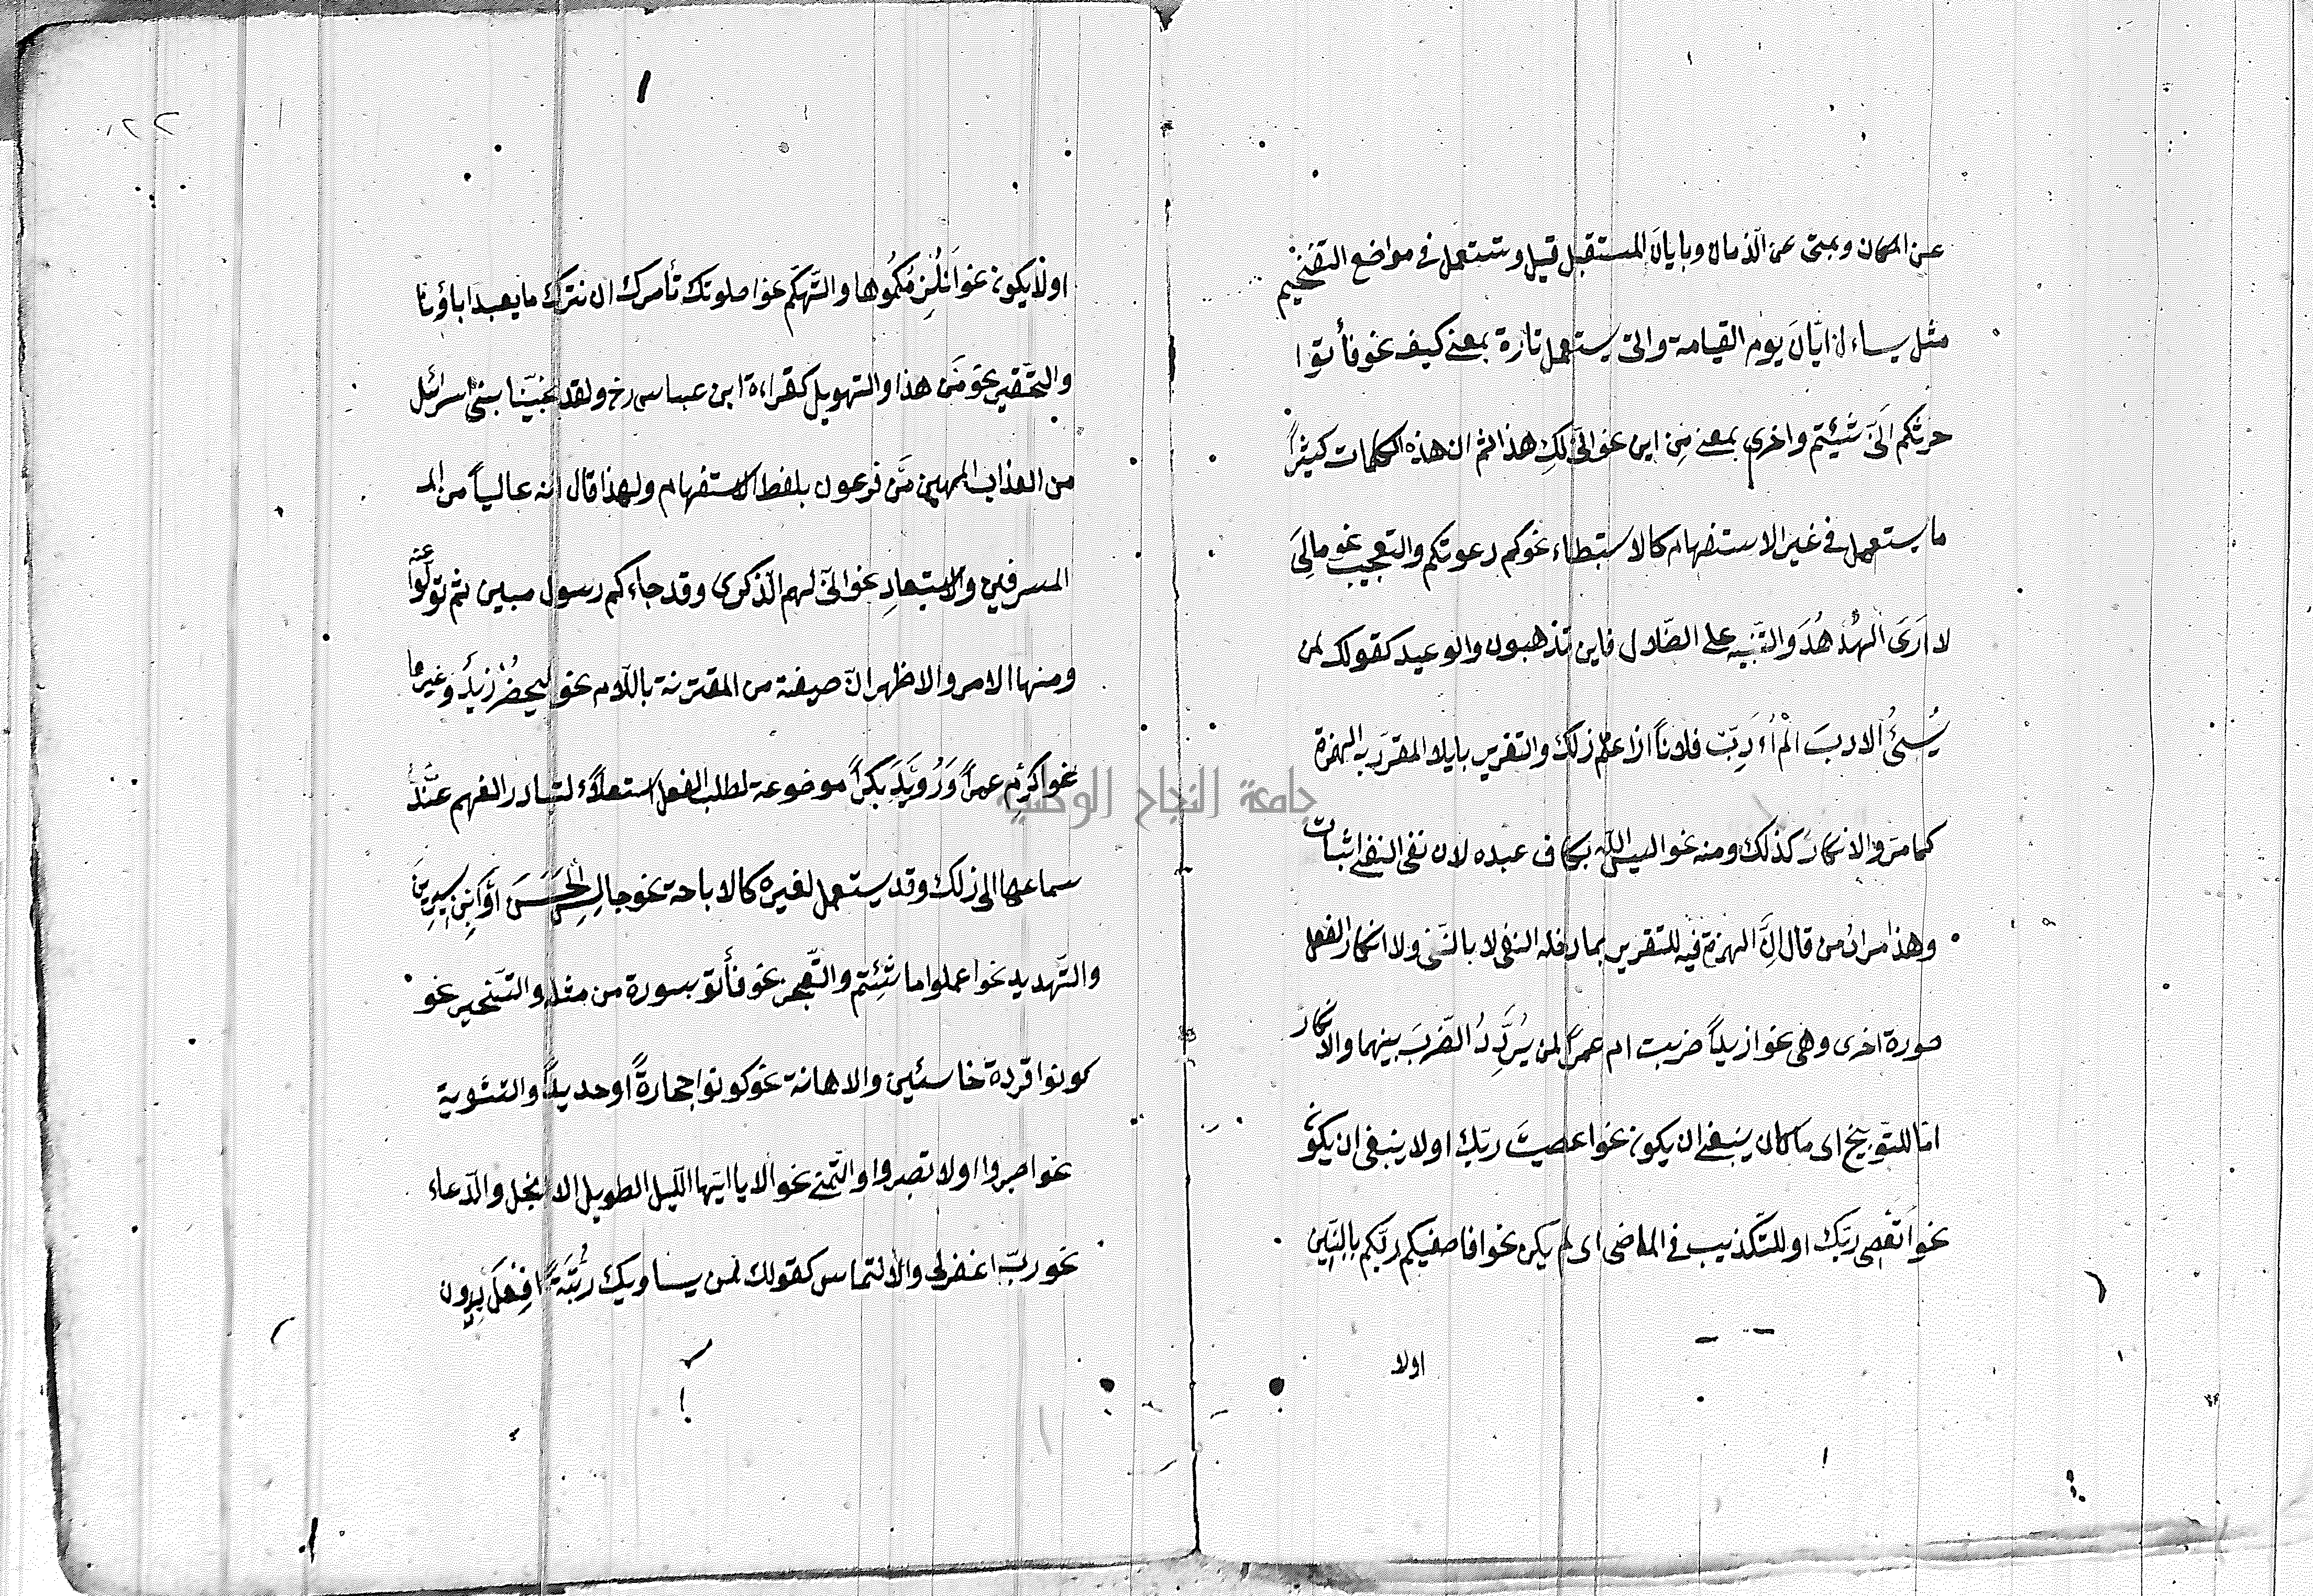 عن المكان وبمتى عن الزمان وبايان المستقبل قيل وتستعمل في مواضع التفخيم
مثل يساءل ايّانَ يوم القيامة وانى يستعمل تارة بمعنى كيف نحو فأتوا
حرثكم انَّى شئيتم واخرى بمعنى مِن اين نحو انَّى لكِ هذا ثم ان هذه الكلمات كثيراً
ما يستعمل في غير الاستفهام كالاستبطاء نحو كم دعوتكم والتعجيب نحو مالِىَ
لا اَرَى الهُدْهُدَ والتَّنبيه على الضّلال فاين تذهبون والوعيد كقولك لمن
يُسِئُ الادبَ الَمْ اُءَدِبّ فلاناً اذا علم ذلك والتقرير بايلاء المقرَر به الهمزة
كما مرّ والانكارُ كذلك ومنه نحو اليس اللّٰه بكاف عبده لان نفى النفى اثبات
وهذا مرادُ من قال اِنَّ الهمزة فيه للتقرير بما دخله النفى لا بالنّفى ولا انكار الفعل
صورة اخرى وهى نحو ازيداً ضربت ام عمراً لمن يُرَدِّدُ الضّربَ بينهما والانكار
امّا للتّوبيخ اى ما كان ينبغى ان يكون نحو اعصيتَ ربّك او لا ينبغى ان يكون
نحو اَتعْصِى ربّك او للتّكذيب في الماضى اى لم يكن نحو افاصفيكم ربّكم بالبَنِين
اولا
٢٢
او لا يكون نحو اَنُلْزِمُكمُوها والتّهكّم نحو اصلوتك تأمرك ان نترك ما يعبد اباؤنا
والتّحقير نحو مَن هذا والتهويل كقراءة ابن عباس رض ولقد نجّيّنا بنى اسرائل
من العذاب المهين مَن فرعون بلفظ الاستفهام ولهذا قال انه عالياً من الم
المسرفين والاستبعادِ نحو انَّى لهم الذّكرى وقد جاءكم رسول مبين ثم تولّوا عنه
ومنها الامر والاظهر انّ صيغته من المقترنة باللّام نحو ليحضُرْ زيدٌ وغيرها
نحو اكرِم عمراً وَرُوَيْدَ بكراً موضوعة لطلب الفعل استعلاءً لتبادر الفهم عنْدَ
سماعها الى ذلك وقد يستعمل لغيره كالاباحة نحو جالِسِ الْحَسَنَ أوَ ابْنِ سِيرِينَ
والتّهديد نحو اعملوا ما شئِتم والتّعجيز نحو فأتو بسورة من مثله والتّسخير نحو
كونوا قردة خاسئين والاهانة نحو كونوا حجارةً او حديداً والتسّوية
نحو اصبروا او لا تصبروا والتّمنى نحو الا يا ايّها اللّيل الطويل الا انجل والدّعاء
نحو ربّ اغفرلى والالتماس كقولك لمن يساويك رُتْبَةً افِعْلَ بِدون